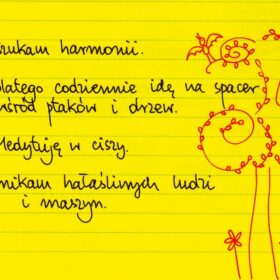 szukam harmonii.
Dlatego codziennie idę na spacer
wśród ptaków i drzew.
Medytuję w ciszy.
Unikam hałaśliwych ludzi
i maszyn.